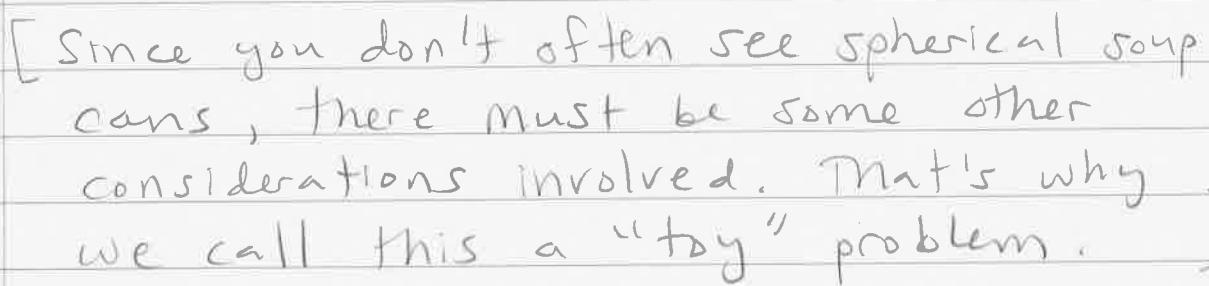 [Since you don't often see spherical soup
cans, there must be some other
considerations involved. That's why
we call this a "toy" problem.